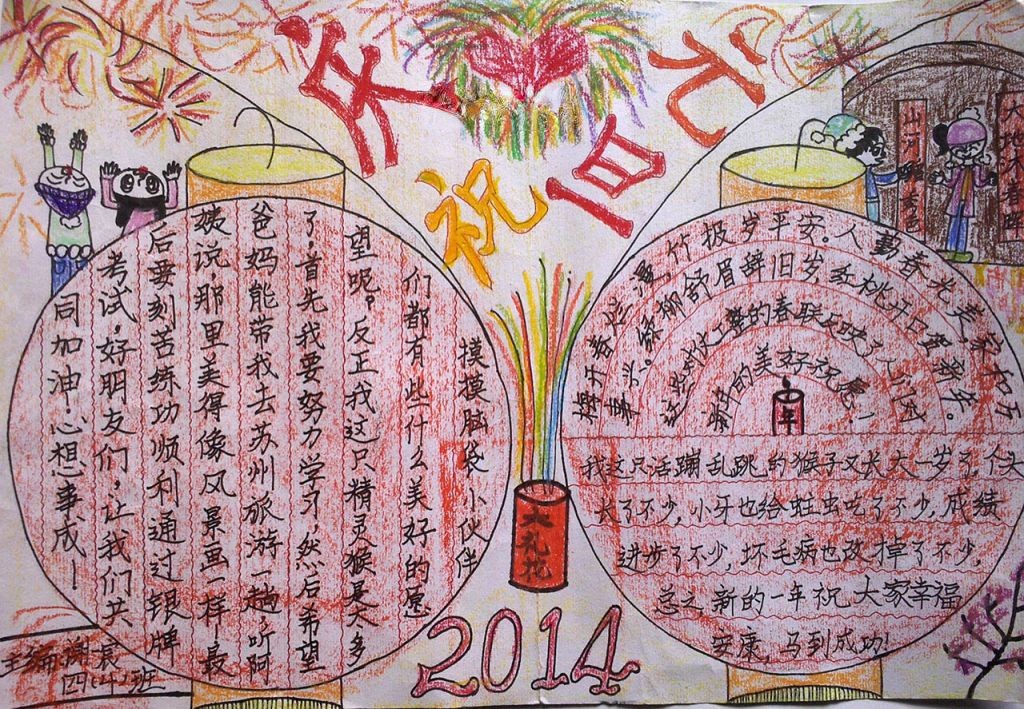 庆祝元旦
山河
大地沐春晖
摸摸脑袋小伙伴
们都有些什么美好的愿
望呢。反正我这只精灵猴是太多
了，首先我要努力学习，然后希望
爸妈能带我去苏州旅游一趟，听阿
姨说，那里美得像风景画一样，最
后要刻苦练功顺利通过银牌
考试，好朋友们，让我们共
同加油，心想事成！
梅开春烂漫 竹报岁平安。人勤春光美 家和万
事兴。绿柳舒眉辞旧岁，红桃开口贺新年。
这些对仗工整的春联反映了人们对
新年的美好祝愿！
年
我这只活蹦乱跳的猴子又长大一岁了，个头
大了不少，小牙也给蛀虫吃了不少，成绩
进步了不少，坏毛病也改掉了不少，
总之新的一年祝大家幸福
安康，马到成功！
大礼花
2014
主编
四(4)班